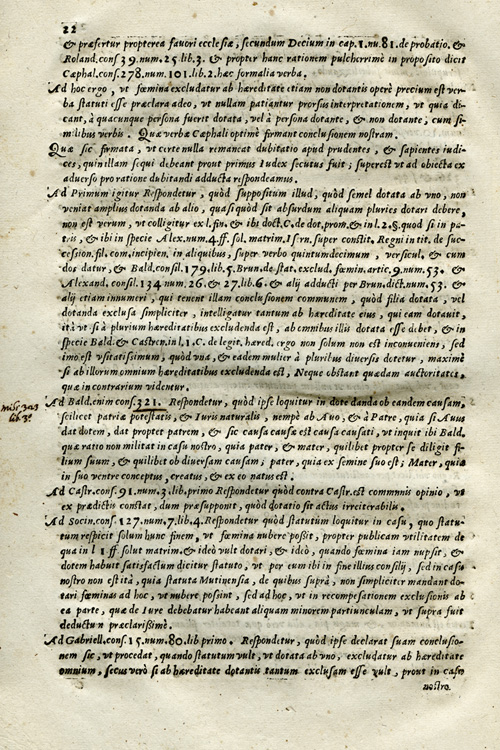 22
& præsertur propterea fauori ecclesiæ, secundum Decium in cap. 1. nu. 81. de probatio. &
Roland. cons. 39. num. 25. lib. 3. & propter hanc rationem pulcherrimè in proposito dicit
Caphal. cons. 278. num. 101. lib. 2. hæc formalia verba.
Ad hoc ergo, vt fœmina excludatur ab hæreditate etiam non dotantis operè precium est ver-
ba statuti esse præclara adeo, vt nullam patiantur prorsus interpretationem, vt quia di-
cant, à quacunque persona fuerit dotata, vel à persona dotante, & non dotante, cum si-
milibus verbis. Quæ verba Caphali optimè firmant conclusionem nostram.
Quæ sic firmata, vt certe nulla remaneat dubitatio apud prudentes, & sapientes iudi-
ces, quin illam sequi debeant prout primus Iudex secutus fuit; superest vt ad obiecta ex
aduerso pro ratione dubitandi adducta respondeamus.
Ad Primum igitur Respondetur, quòd suppositum illud, quòd semel dotata ab vno, non
veniat amplius dotanda ab alio, quasi quòd sit absurdum aliquam pluries dotari debere,
non est verum, vt colligitur ex l. fin. & ibi doct. C. de dot. prom. & in l. 2. §. quod si in pa-
tris, & ibi in specie Alex. num. 4. ff. sol. matrim. Isern. super constit. Regni in tit. de suc-
cession. fil. com. incipien. in aliquibus, super verbo quintumdecimum, versicul. & cum
dos datur, & Bald. consil. 179. lib. 5. Brun. de stat. exclud. fœmin. artic. 9. num. 53. &
Alexand. consil. 134. num. 26. & 27. lib. 6. & alij adducti per Brun. dict. num. 53. &
alij etiam innumeri, qui tenent illam conclusionem communem, quòd filia dotata, vel
dotanda exclusa simpliciter, intelligatur tantum ab hæreditate eius, qui eam dotauit,
ità vt si à plurium hæreditatibus excludenda est, ab omnibus illis dotata esse debet, & in
specie Bald. & Castren. in l. 1. C. de legit. hæred. ergo non solum non est inconueniens, sed
imo est vsitatissimum, quòd vna, & eadem mulier à pluribus diuersis dotetur, maximè
se ab illorum omnium hæreditatibus excludenda est, Neque obstant quædam auctoritates,
quæ in contrarium videntur.
Ad Bald. enim cons. 321. Respondetur, quòd ipse loquitur in dote danda ob eandem causam,
scilicet patriæ potestatis, & Iuris naturalis, nempè ab Auo, & à Patre, quia si Auus
dat dotem, dat propter patrem, & sic causa causæ est causa causati, vt inquit ibi Bald.
quæ ratio non militat in casu nostro, quia pater, & mater, quilibet propter se diligit fi-
lium suum, & quilibet ob diuersam causam; pater, quia ex semine suo est; Mater, quia
in suo ventre conceptus, creatus, & ex eo natus est.
Ad Castr. cons. 91. num. 3. lib. primo Respondetur quòd contra Castr. est commnnis opinio, vt
ex prædictis constat, dum præsupponit, quòd dotatio sit actus irreiterabilis.
Ad Socin. cons. 127. num. 7. lib. 4. Respondetur quòd statutum loquitur in casu, quo statu-
tum respicit solum hunc finem, vt fœmina nubere possit, propter publicam vtilitatem de
qua in l 1. ff. solut matrim. & ideò vult dotari, & ideò, quando fœmina iam nupsit, &
dotem habuit satisfactum dicitur statuto, vt per eum ibi in fine illius consilij, sed in casu
nostro non est ità, quia statuta Mutinensia, de quibus suprà, non simpliciter mandant do-
tari fœminas ad hoc, vt nubere possint, sed ad hoc, vt in recompesationem exclusionis ab
ea parte, quæ de Iure debebatur habeant aliquam minorem partiunculam, vt supra fuit
deductum præclarissimè.
Ad Gabriell. cons. 15. num. 80. lib primo. Respondetur, quòd ipse declarat suam conclusio-
nem sic, vt procedat, quando statutum vult, vt dotata ab vno, excludatur ab hæreditate
omnium, secus verò si ab hæreditate dotantis tantum exclusam esse vult, prout in casu
nostro.